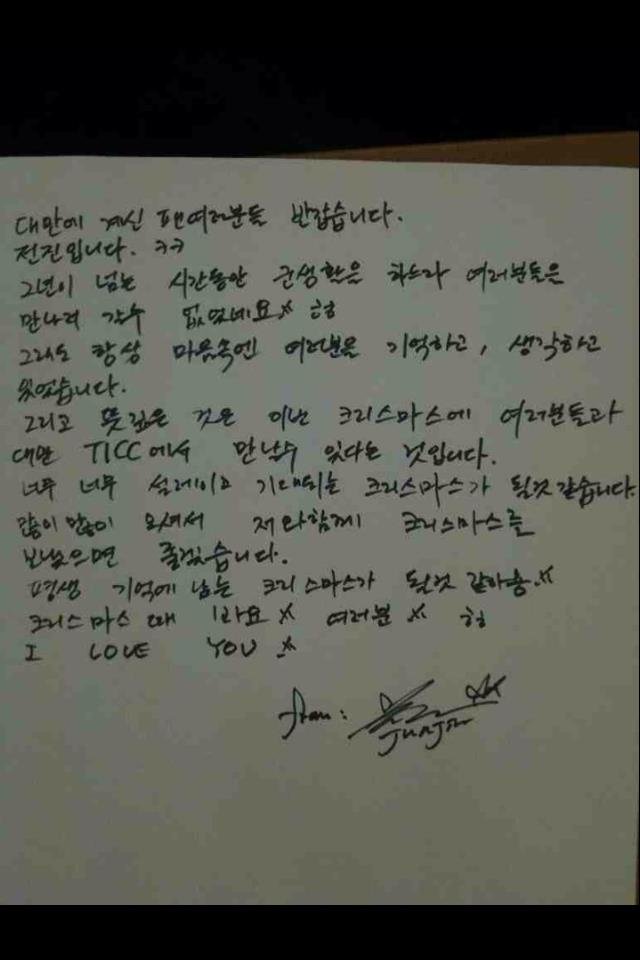 대만에 계신 팬여러분들 반갑습니다.
전진입니다. ㅋㅋ
2년이 넘는 시간동안 군생활을 하느라 여러분들을
만나러 갈수 없었네요 ㅎㅎ
그래도 항상 마음속엔 여러분을 기억하고, 생각하고
있었습니다.
그리고 뜻깊은 것은 이번 크리스마스에 여러분들과
대만 TICC에서 만날수 있다는 것입니다.
너무 너무 설레이고 기대되는 크리스마스가 될것 같습니다.
많이 많이 오셔서 저와함께 크리스마스를
보냈으면 좋겠습니다.
평생 기억에 남는 크리스마스가 될것 같아용.
크리스마스 때 봐요 여러분 ㅎㅎ
I LOVE YOU
from: JunJin